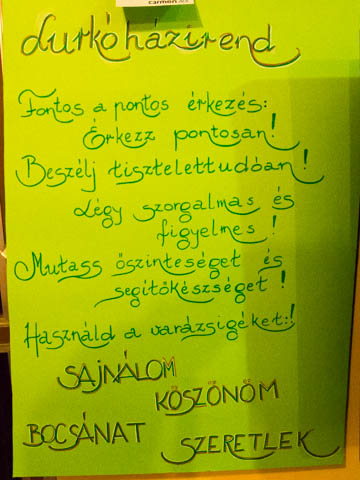 carmen
Lurkóházirend
Fontos a pontos érkezés:
Érkezz pontosan!
Beszélj tisztelettudóan!
Légy szorgalmas és
figyelmes!
Mutass őszinteséget és
segítőkészséget!
Használd a varázsigéket:!
SAJNÁLOM
KÖSZÖNÖM
BOCSÁNAT
SZERETLEK